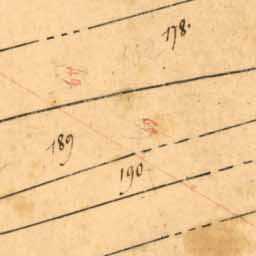 178.
189
190